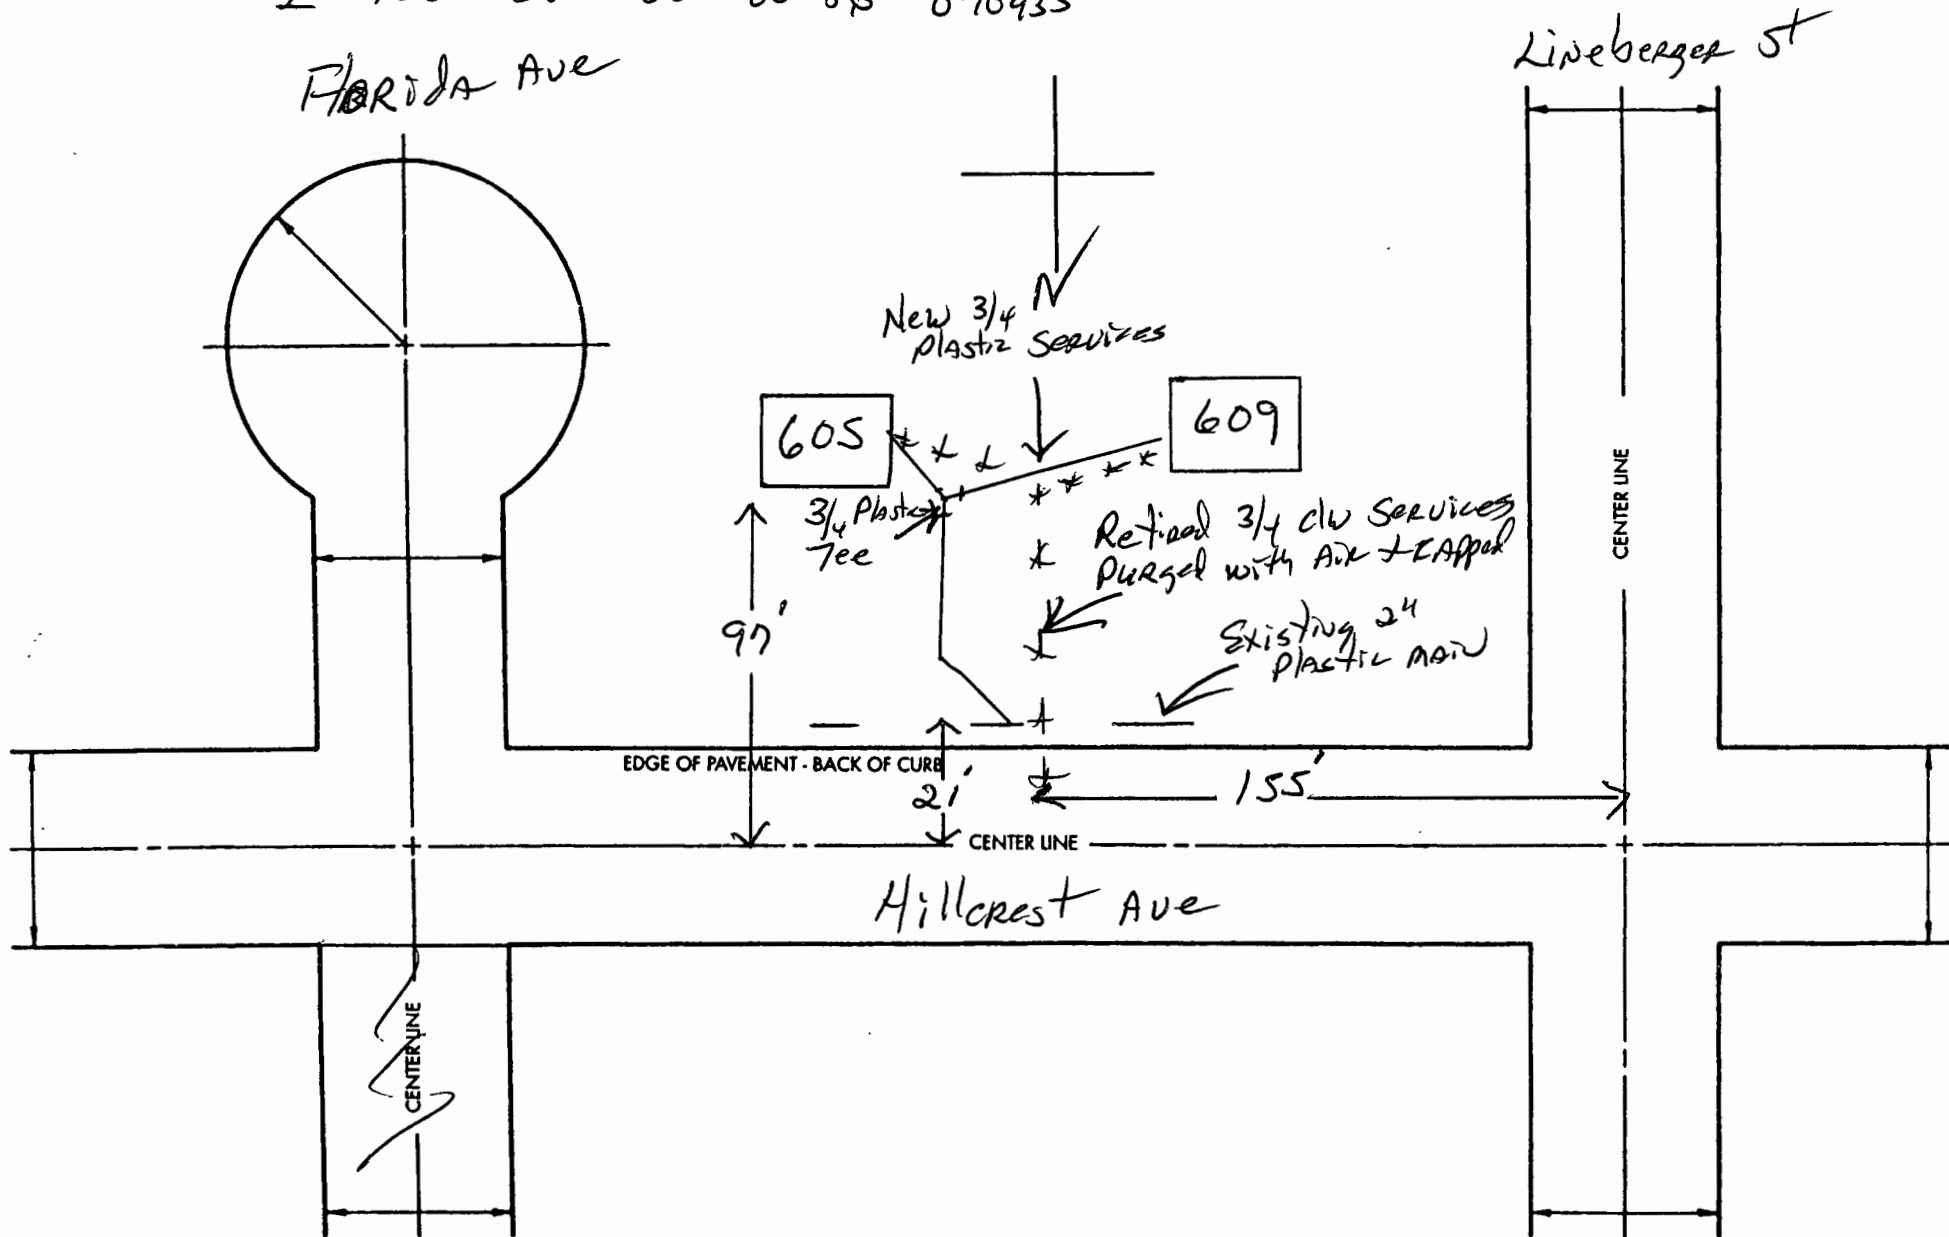 090935
Florida Ave
Lineberger St
N
New 3/4
Plastic Services
605
609
3/4 Plastic
Tee
Retired 3/4 c/w Services
Purged with Air + CApped
97'
Existing 2"
Plastic main
CENTER LINE
EDGE OF PAVEMENT - BACK OF CURB
21'
155'
CENTER LINE
Hillcrest Ave
CENTER LINE